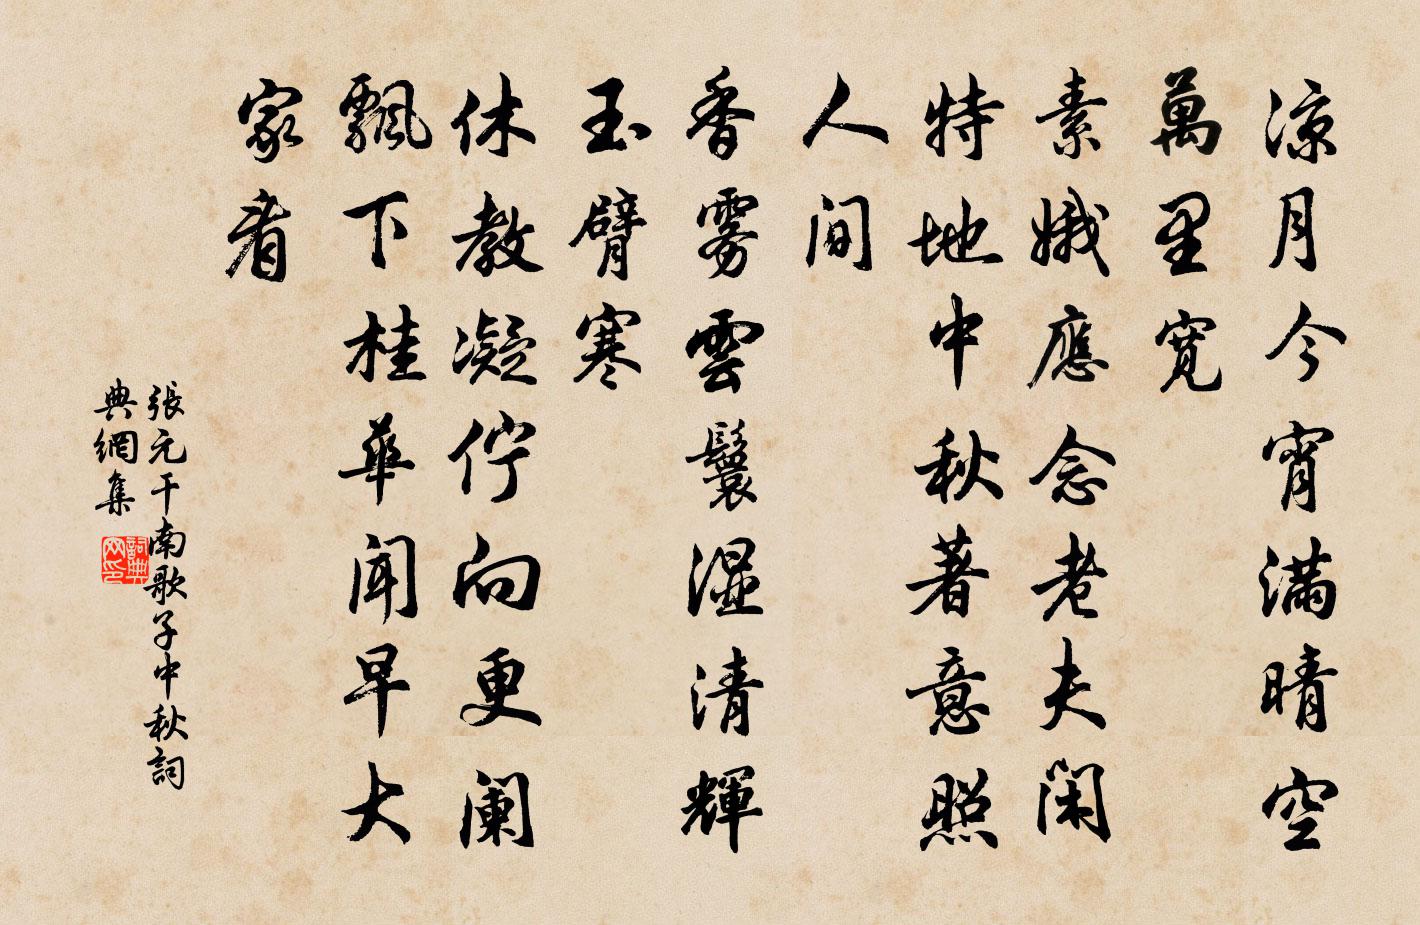 凉月今宵滿晴空
萬里寬
素娥應念老夫闲
特地中秋著意照
人間
香雾雲鬟濕清輝
玉臂寒
休教凝佇向更阑
飄下桂華聞早大
家看
張元干南歌子中秋詞
典網集
詞典
网印